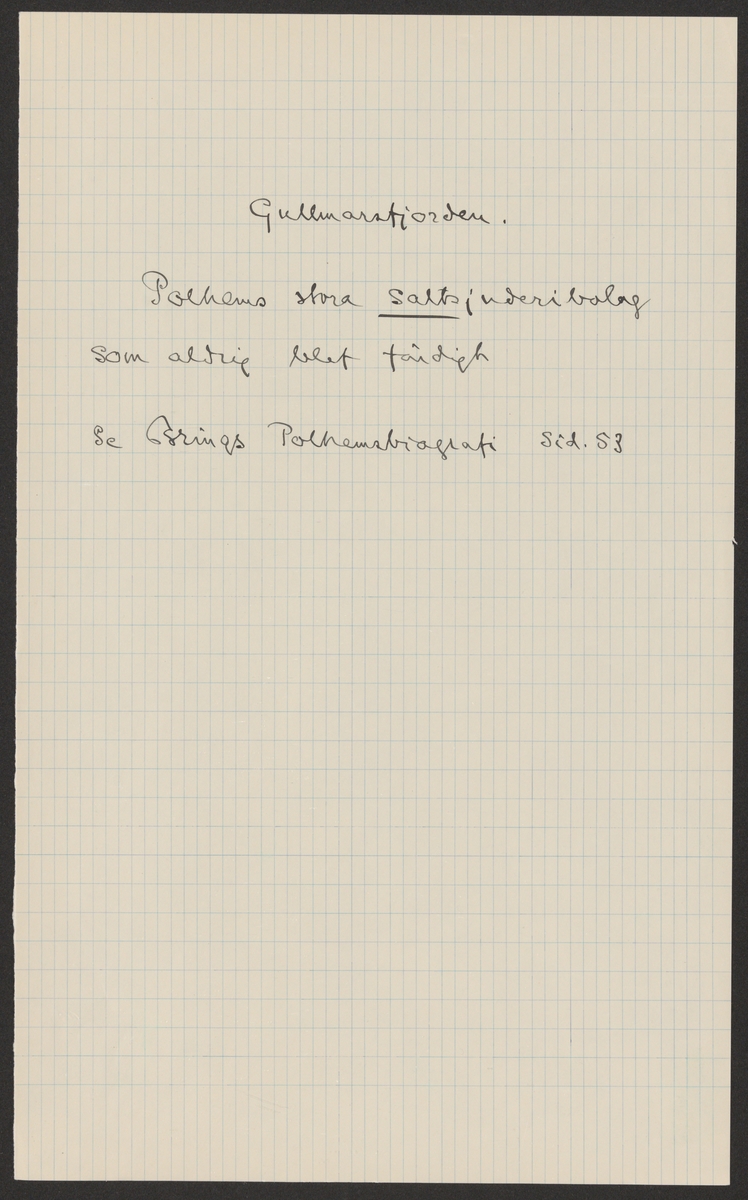 Gullmarsfjorden.
Polhems stora saltsjuderibolag
som aldrig blef färdigt
Se Brings Polhemsbiografi Sid. 53